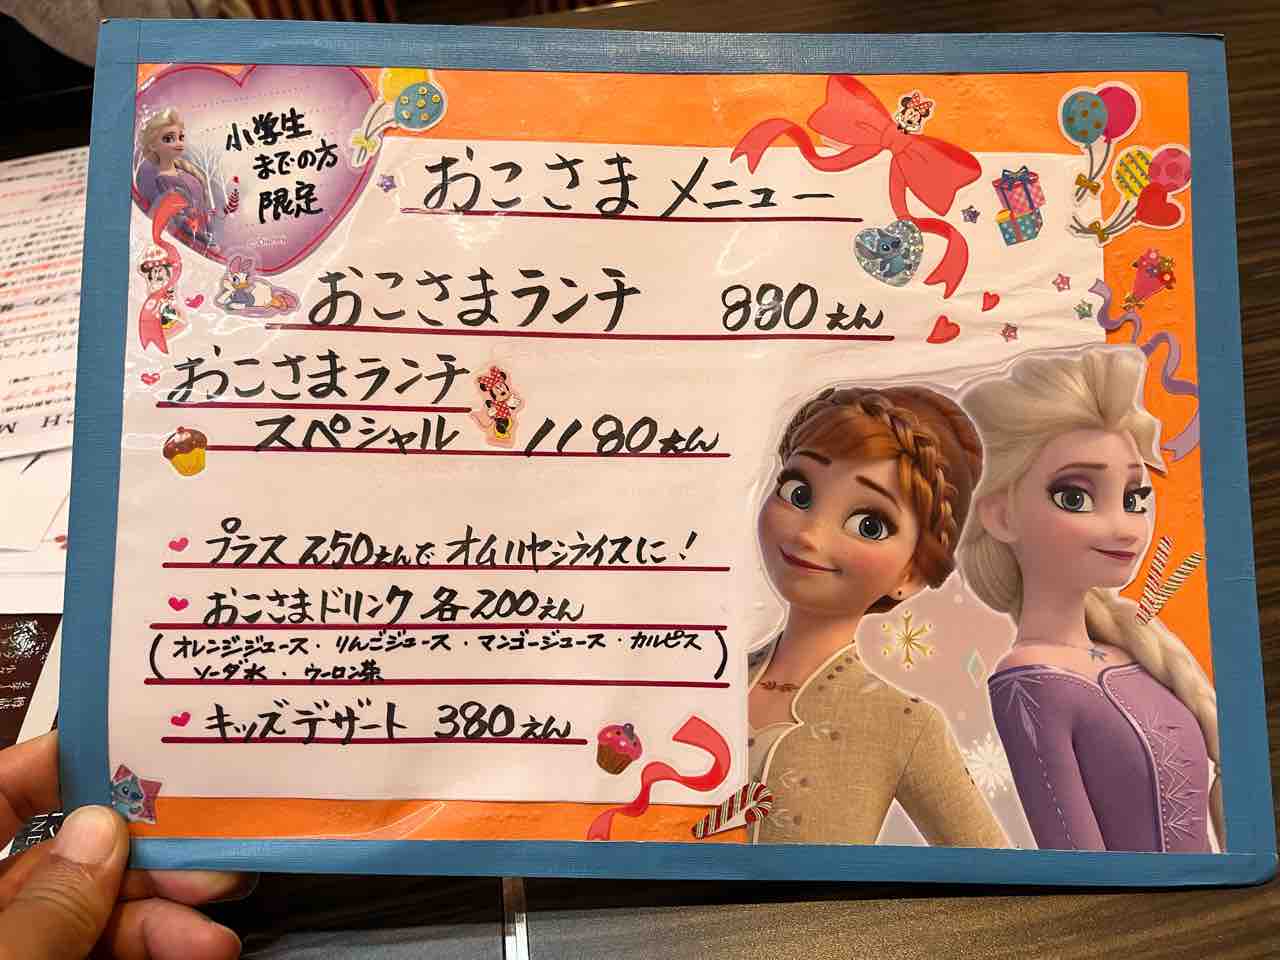 小学生
までの方
限定
おこさまメニュー
おこさまランチ 880えん
おこさまランチ
スペシャル 1180えん
プラス250えんで オムハヤシライスに!
おこさまドリンク 各200えん
(オレンジジュース・りんごジュース・マンゴージュース・カルピス
ソーダ水・ウーロン茶)
キッズデザート 380えん